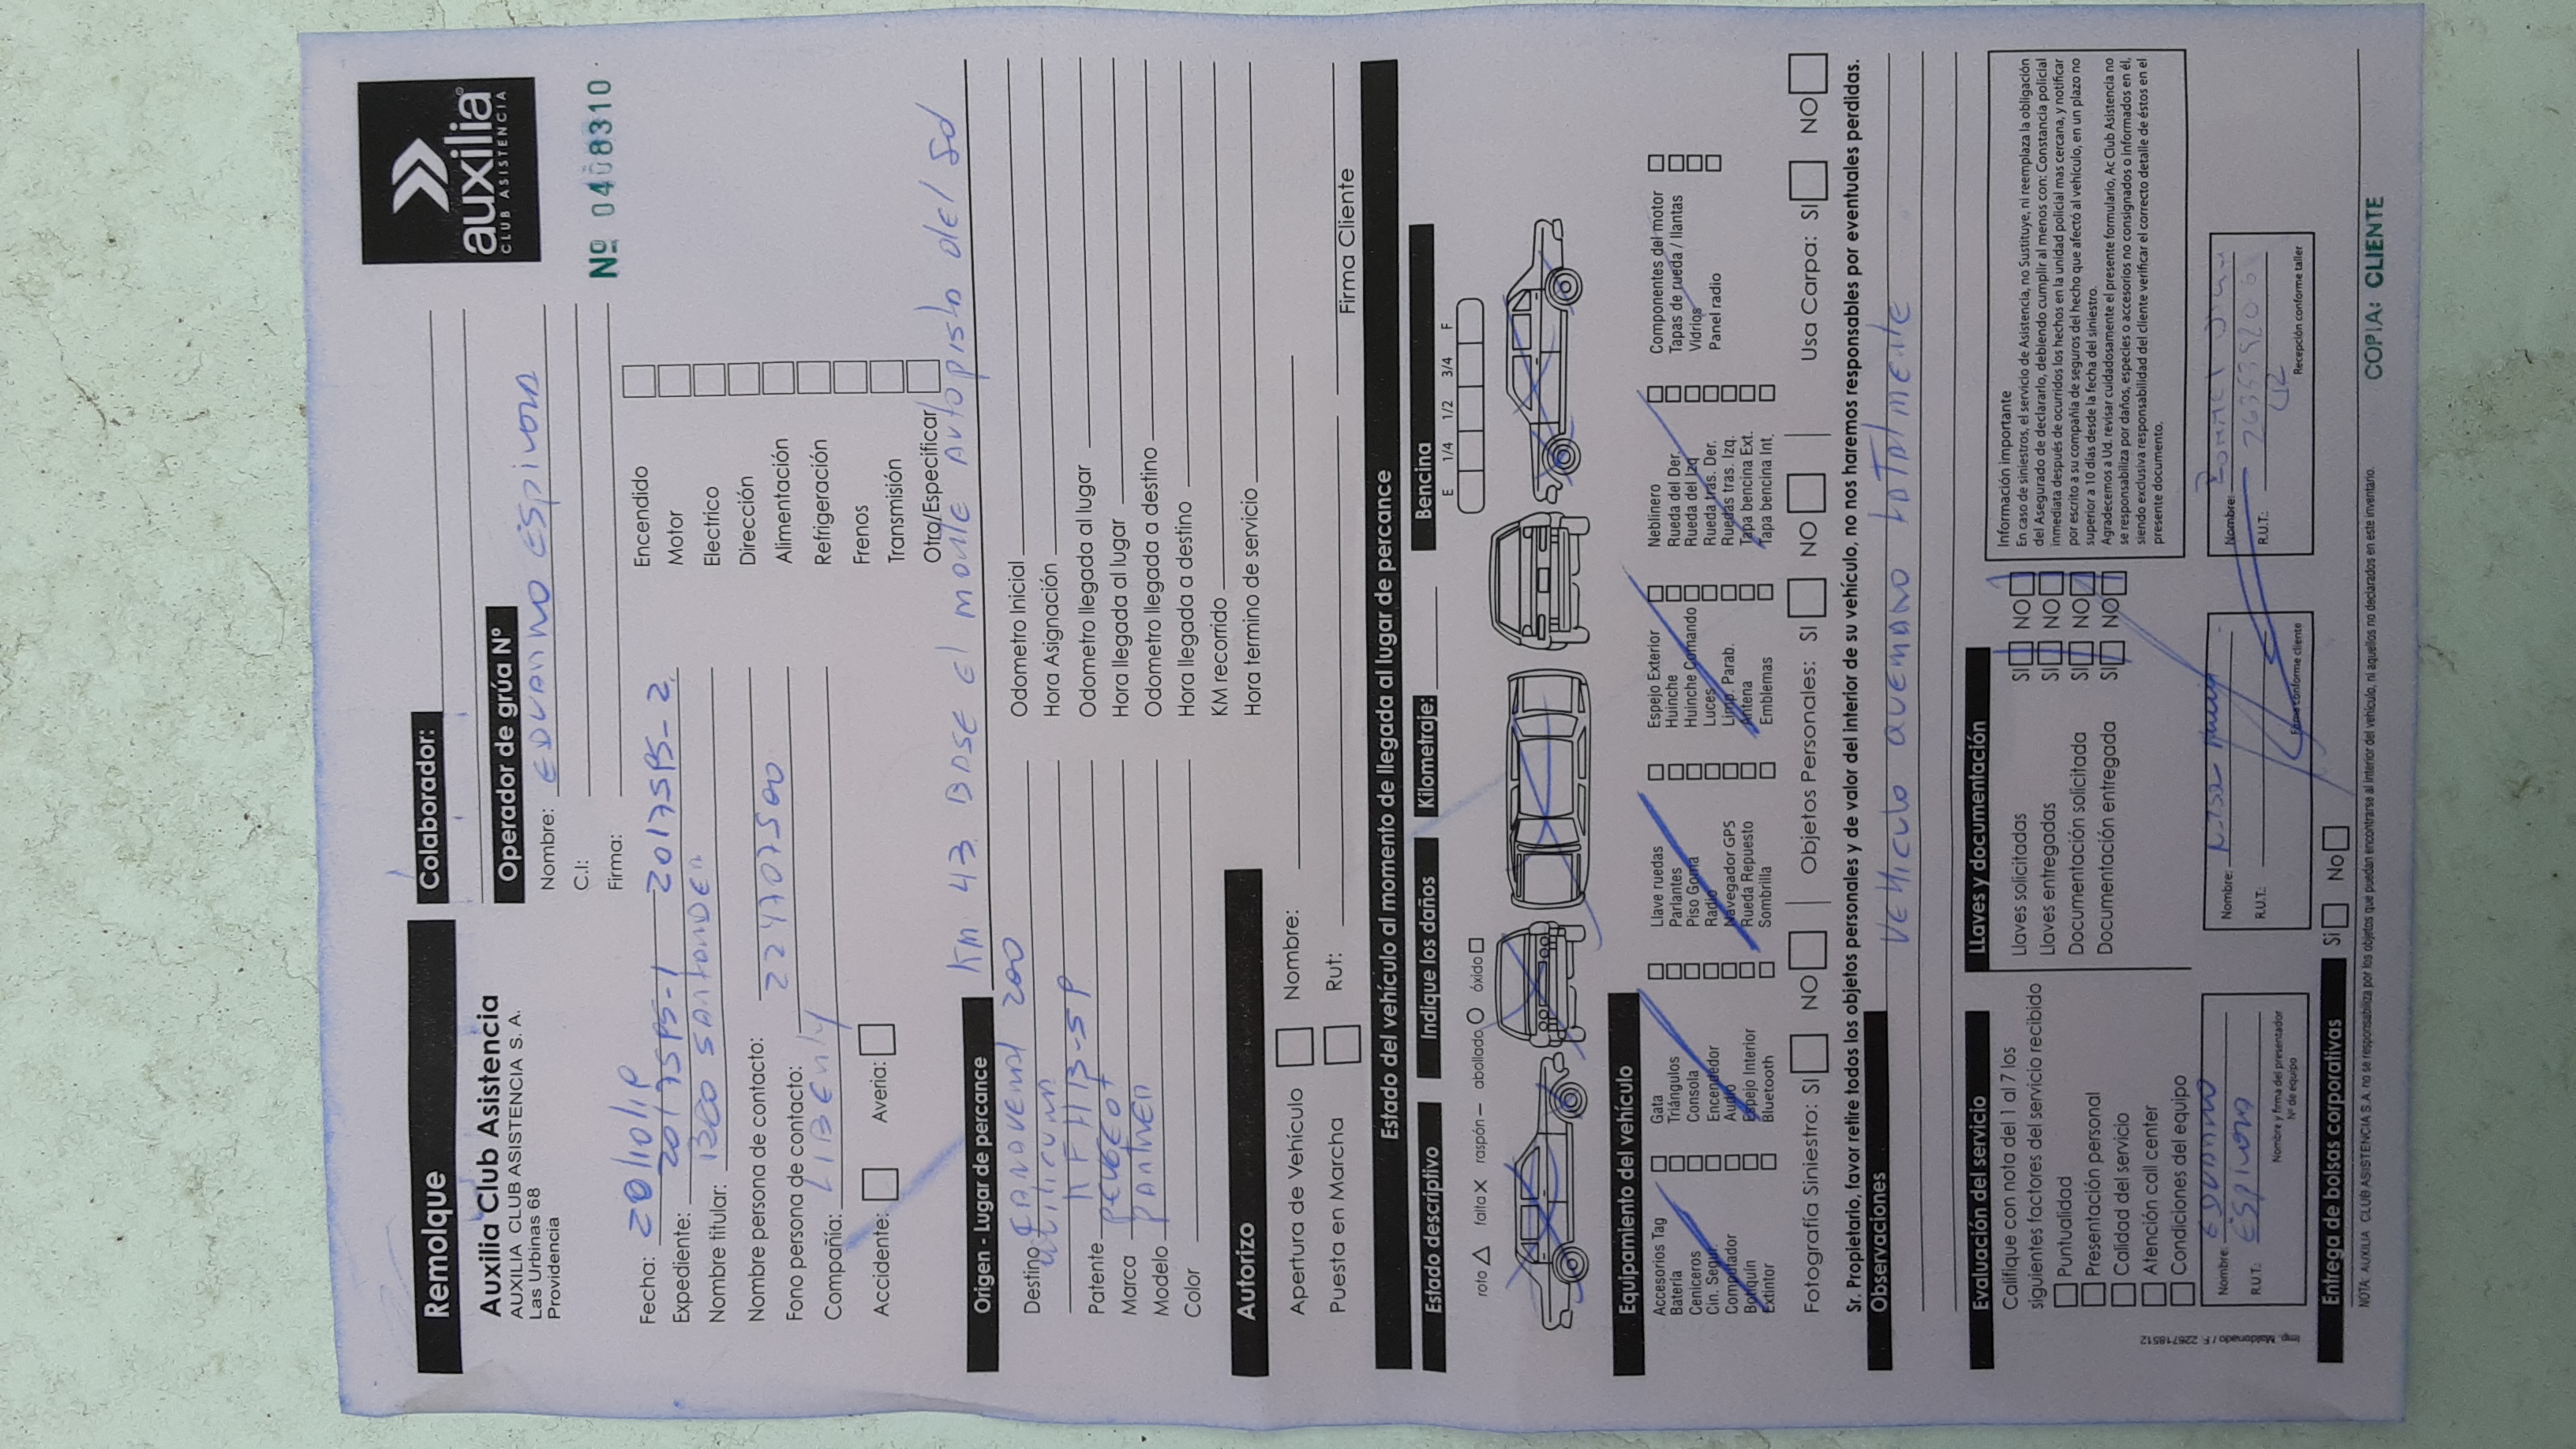 Remolque
Auxilia Club Asistencia
AUXILIA CLUB ASISTENCIA S. A.
Las Urbinas 68
Providencia
Colaborador:
Operador de grúa Nº
Nombre: EDUARNO ESPINOZA
C.I:
Firma:
auxilia
CLUB ASISTENCIA
Nº 0408310
Fecha: 20/10/P
Expediente: 20175P5-1 20175P5-2
Nombre titular: BCO SANTANDER
Nombre persona de contacto:
Fono persona de contacto: 227107500
Compañía: LIBERTY
Accidente: Averia:
Encendido
Motor
Electrico
Dirección
Alimentación
Refrigeración
Frenos
Transmisión
Otro/Especificar
Origen - Lugar de percance Km 43 BASE El MONTE AUTOPISTA del Sol
Destino 200
Patente
Marca PEUGEOT
Modelo PARTNER
Color
Odometro Inicial
Hora Asignación
Odometro llegada al lugar
Hora llegada al lugar
Odometro llegada a destino
Hora llegada a destino
KM recorrido
Hora termino de servicio
Autorizo
Apertura de Vehículo Nombre:
Puesta en Marcha Rut: Firma Cliente
Estado del vehículo al momento de llegada al lugar de percance
Estado descriptivo Indique los daños Kilometraje: Bencina
roto falta X raspón — abollado óxido
E 1/4 1/2 3/4 F
Equipamiento del vehículo
Accesorios Tag
Batería
Ceniceros
Cin. Segur.
Computador
Botiquín
Extintor
Gata
Triángulos
Consola
Encendedor
Audio
Espejo Interior
Bluetooth
Llave ruedas
Parlantes
Piso Goma
Radio
Navegador GPS
Rueda Repuesto
Sombrilla
Espejo Exterior
Huinche
Huinche Comando
Luces
Limp. Parab.
Antena
Emblemas
Neblinero
Rueda del Der.
Rueda del Izq
Rueda tras. Der.
Ruedas tras. Izq.
Tapa bencina Ext.
Tapa bencina Int.
Componentes del motor
Tapas de rueda / llantas
Vidrios
Panel radio
Fotografía Siniestro: SI NO Objetos Personales: SI NO Usa Carpa: SI NO
Sr. Propietario, favor retire todos los objetos personales y de valor del interior de su vehículo, no nos haremos responsables por eventuales perdidas.
Observaciones VEHICULO QUEMADO TOTALMENTE
Evaluación del servicio
Califique con nota del 1 al 7 los
siguientes factores del servicio recibido
Puntualidad
Presentación personal
Calidad del servicio
Atención call center
Condiciones del equipo
Llaves y documentación
Llaves solicitadas SI NO
Llaves entregadas SI NO
Documentación solicitada SI NO
Documentación entregada SI NO
Información importante
En caso de siniestros, el servicio de Asistencia, no Sustituye, ni reemplaza la obligación
del Asegurado de declararlo, debiendo cumplir al menos con: Constancia policial
inmediata después de ocurridos los hechos en la unidad policial mas cercana, y notificar
por escrito a su compañía de seguros del hecho que afectó al vehículo, en un plazo no
superior a 10 días desde la fecha del siniestro.
Agradecemos a Ud. revisar cuidadosamente el presente formulario, Ac Club Asistencia no
se responsabiliza por daños, especies o accesorios no consignados o informados en él,
siendo exclusiva responsabilidad del cliente verificar el correcto detalle de éstos en el
presente documento.
Nombre: EDUARNO
R.U.T.: ESPINOZA
Nombre y firma del presentador
Nº de equipo
Nombre:
R.U.T.:
Firma conforme cliente
Nombre:
R.U.T.:
Recepción conforme taller
Imp. Maldonado / F. 226718512
Entrega de bolsas corporativas Si No
NOTA: AUXILIA CLUB ASISTENCIA S.A. no se responsabiliza por los objetos que puedan encontrarse al interior del vehículo, ni aquellos no declarados en este inventario.
COPIA: CLIENTE